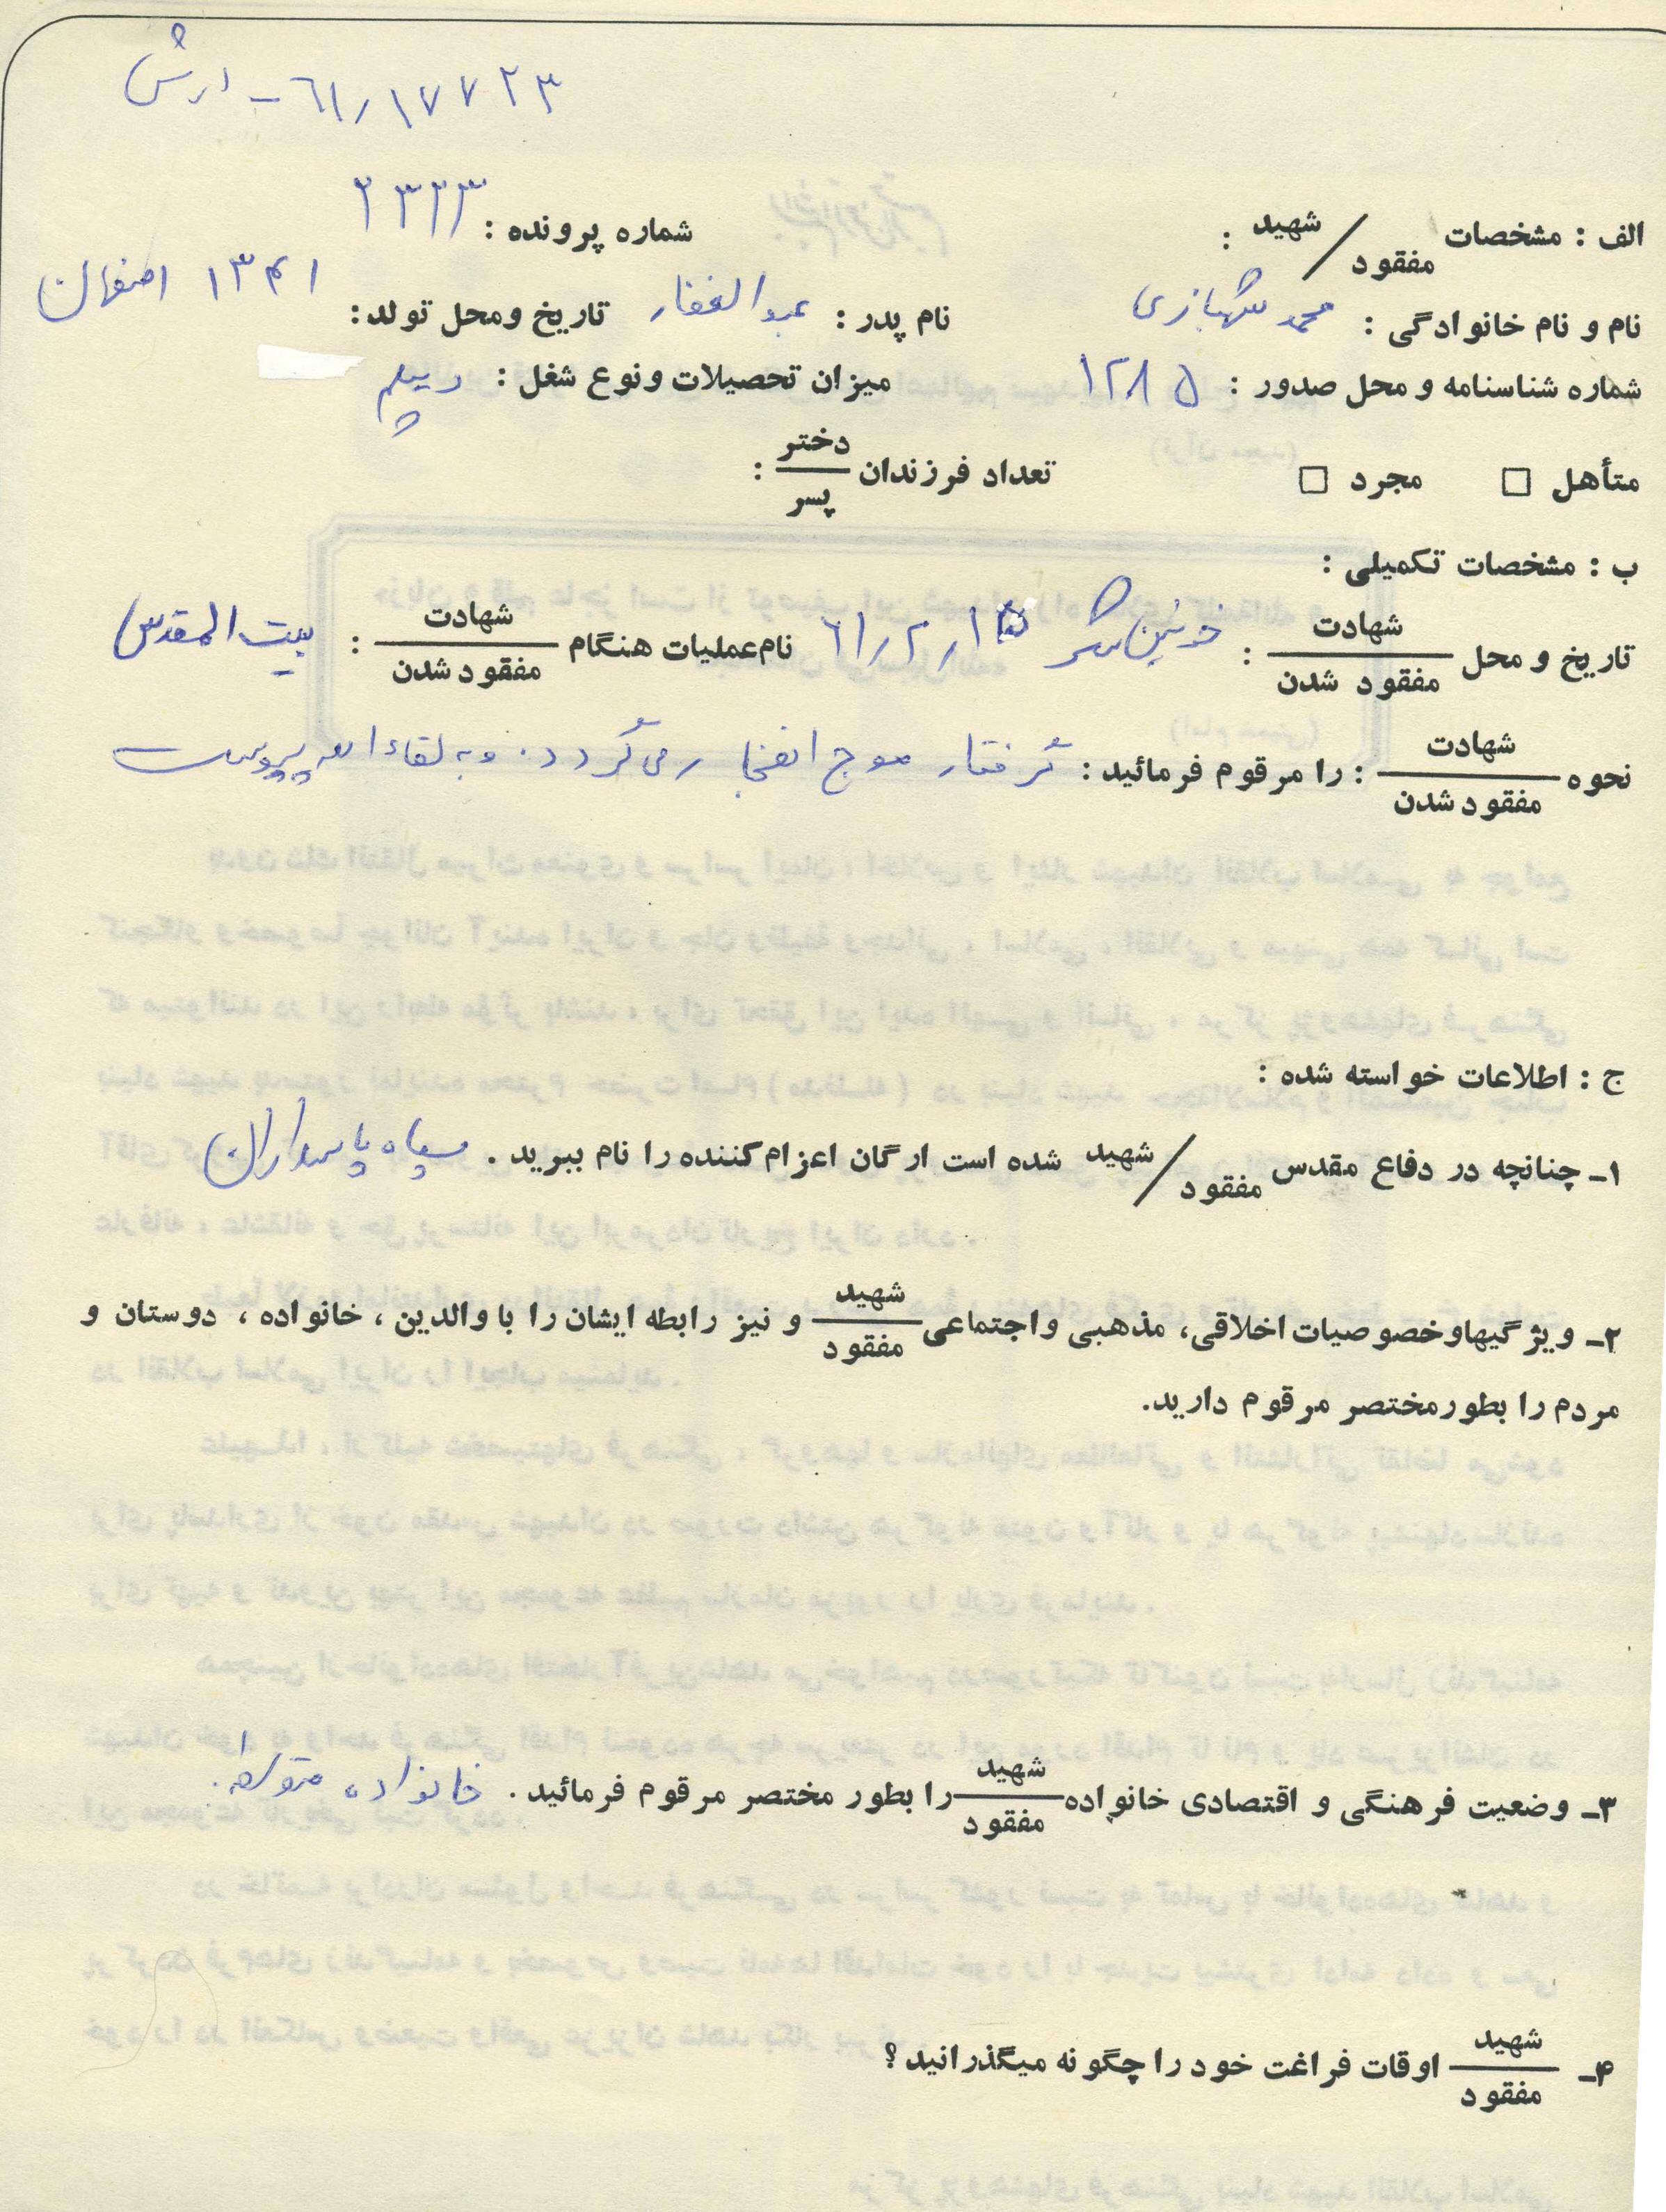 ۶۱/۱۷۷۲۳ - ارتش
الف : مشخصات شهید / مفقود : شماره پرونده : ۲۳۲۳
نام و نام خانوادگی : محمد شهبازی نام پدر : عبدالغفار تاریخ ومحل تولد : ۱۳۴۱ اصفهان
شماره شناسنامه و محل صدور : ۱۲۸۵ میزان تحصیلات ونوع شغل : دیپلم
متأهل □ مجرد □ تعداد فرزندان دختر / پسر :
ب : مشخصات تکمیلی :
تاریخ و محل شهادت / مفقود شدن : خونین شهر ۶۱/۲/۱۵ نام عملیات هنگام شهادت / مفقود شدن : بیت المقدس
نحوه شهادت / مفقود شدن : را مرقوم فرمائید : گرفتار موج انفجار می گردد . و به لقاء الله پیوست
ج : اطلاعات خواسته شده :
۱ـ چنانچه در دفاع مقدس شهید / مفقود شده است ارگان اعزام کننده را نام ببرید . سپاه پاسداران
۲ـ ویژگیهاوخصوصیات اخلاقی، مذهبی واجتماعی شهید / مفقود و نیز رابطه ایشان را با والدین ، خانواده ، دوستان و
مردم را بطورمختصر مرقوم دارید.
۳ـ وضعیت فرهنگی و اقتصادی خانواده شهید / مفقود را بطور مختصر مرقوم فرمائید . خانواده متوسط .
۴ـ شهید / مفقود اوقات فراغت خود را چگونه میگذرانید ؟